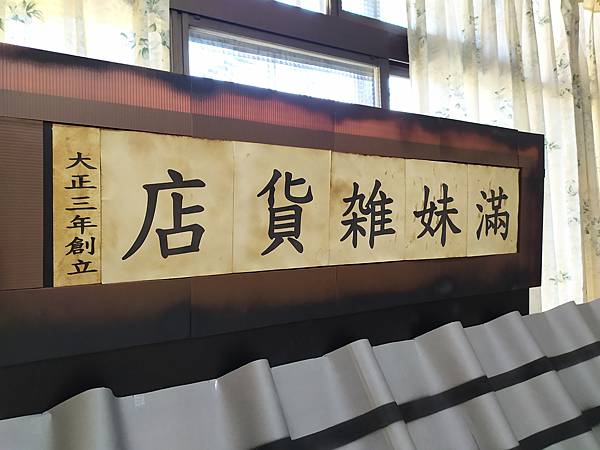 滿妹雑貨店
大正三年創立